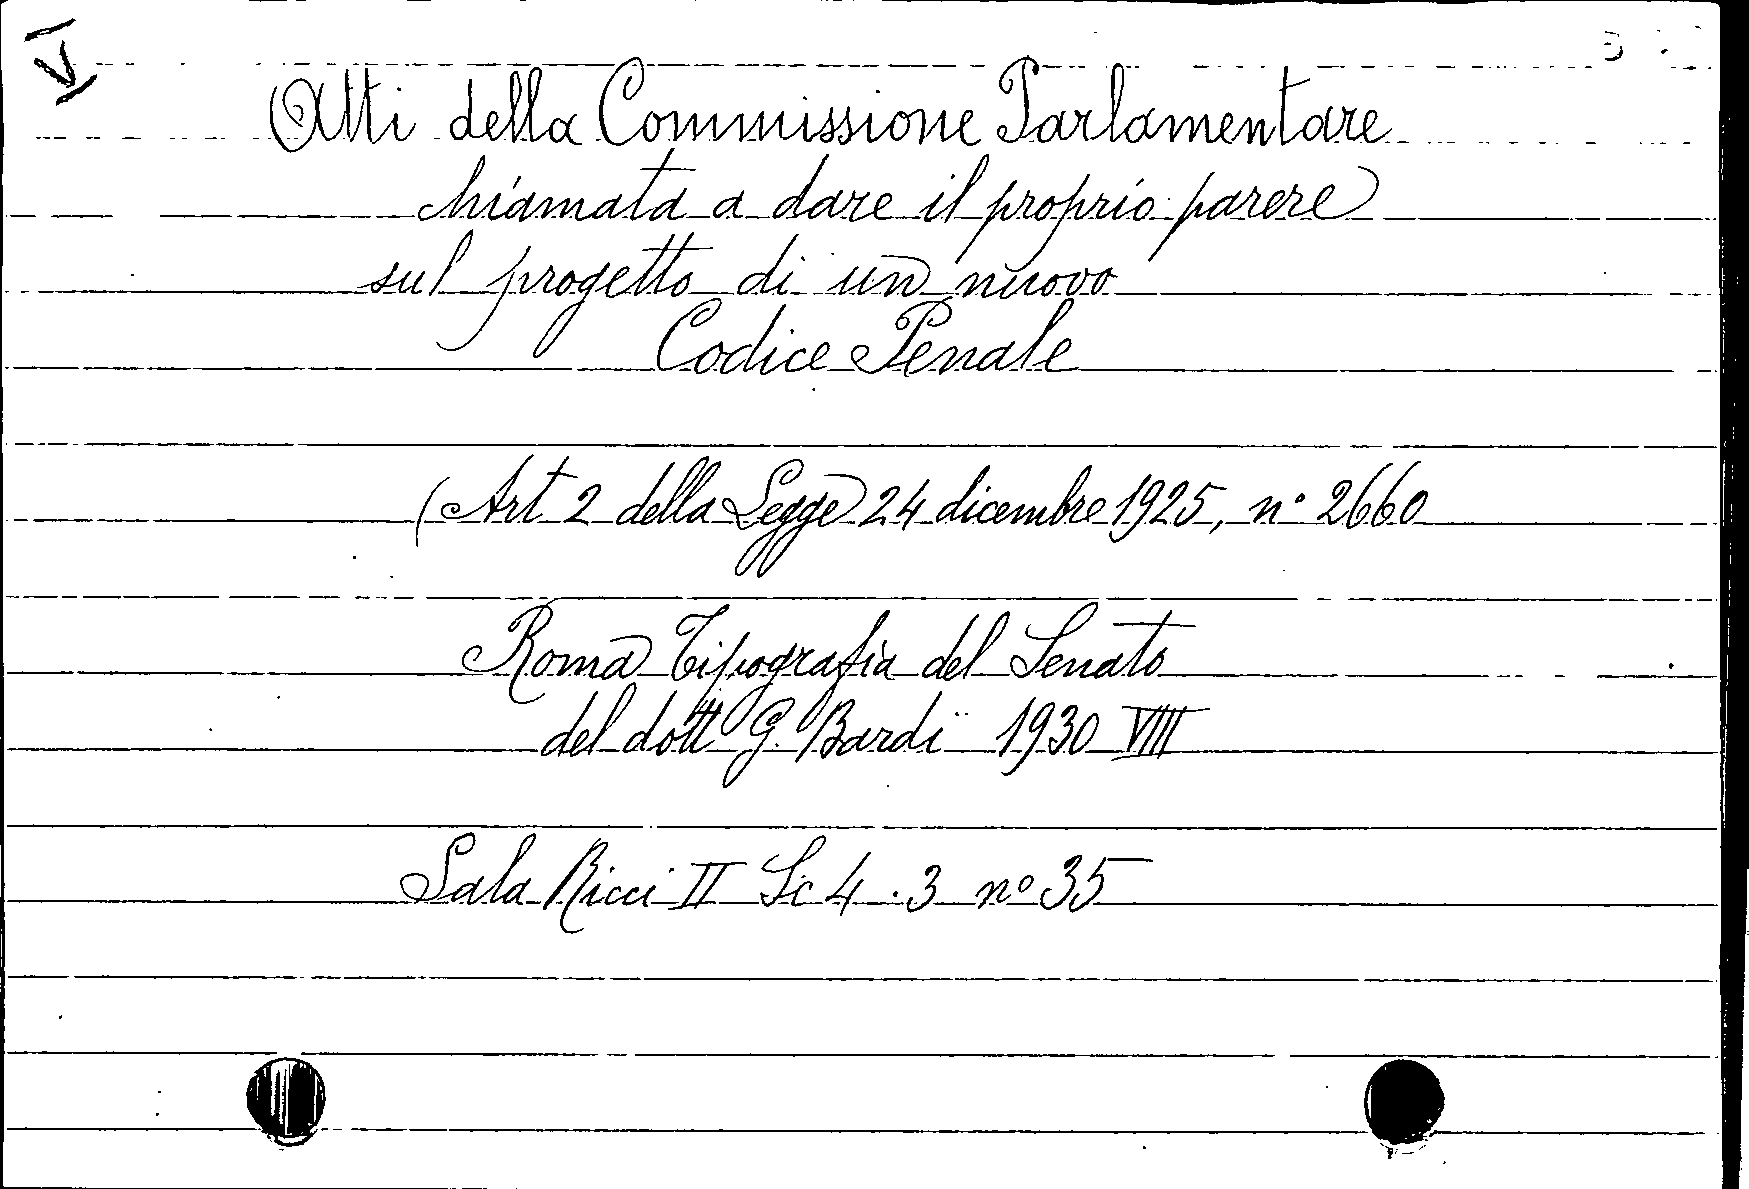 Atti della Commissione Parlamentare
chiamata a dare il proprio parere
sul progetto di un nuovo
Codice Penale
(Art 2 della Legge 24 dicembre 1925, n° 2660
Roma Tipografia del Senato
del dott G. Bardi 1930 VIII
Sala Ricci II Sc 4 . 3 n° 35